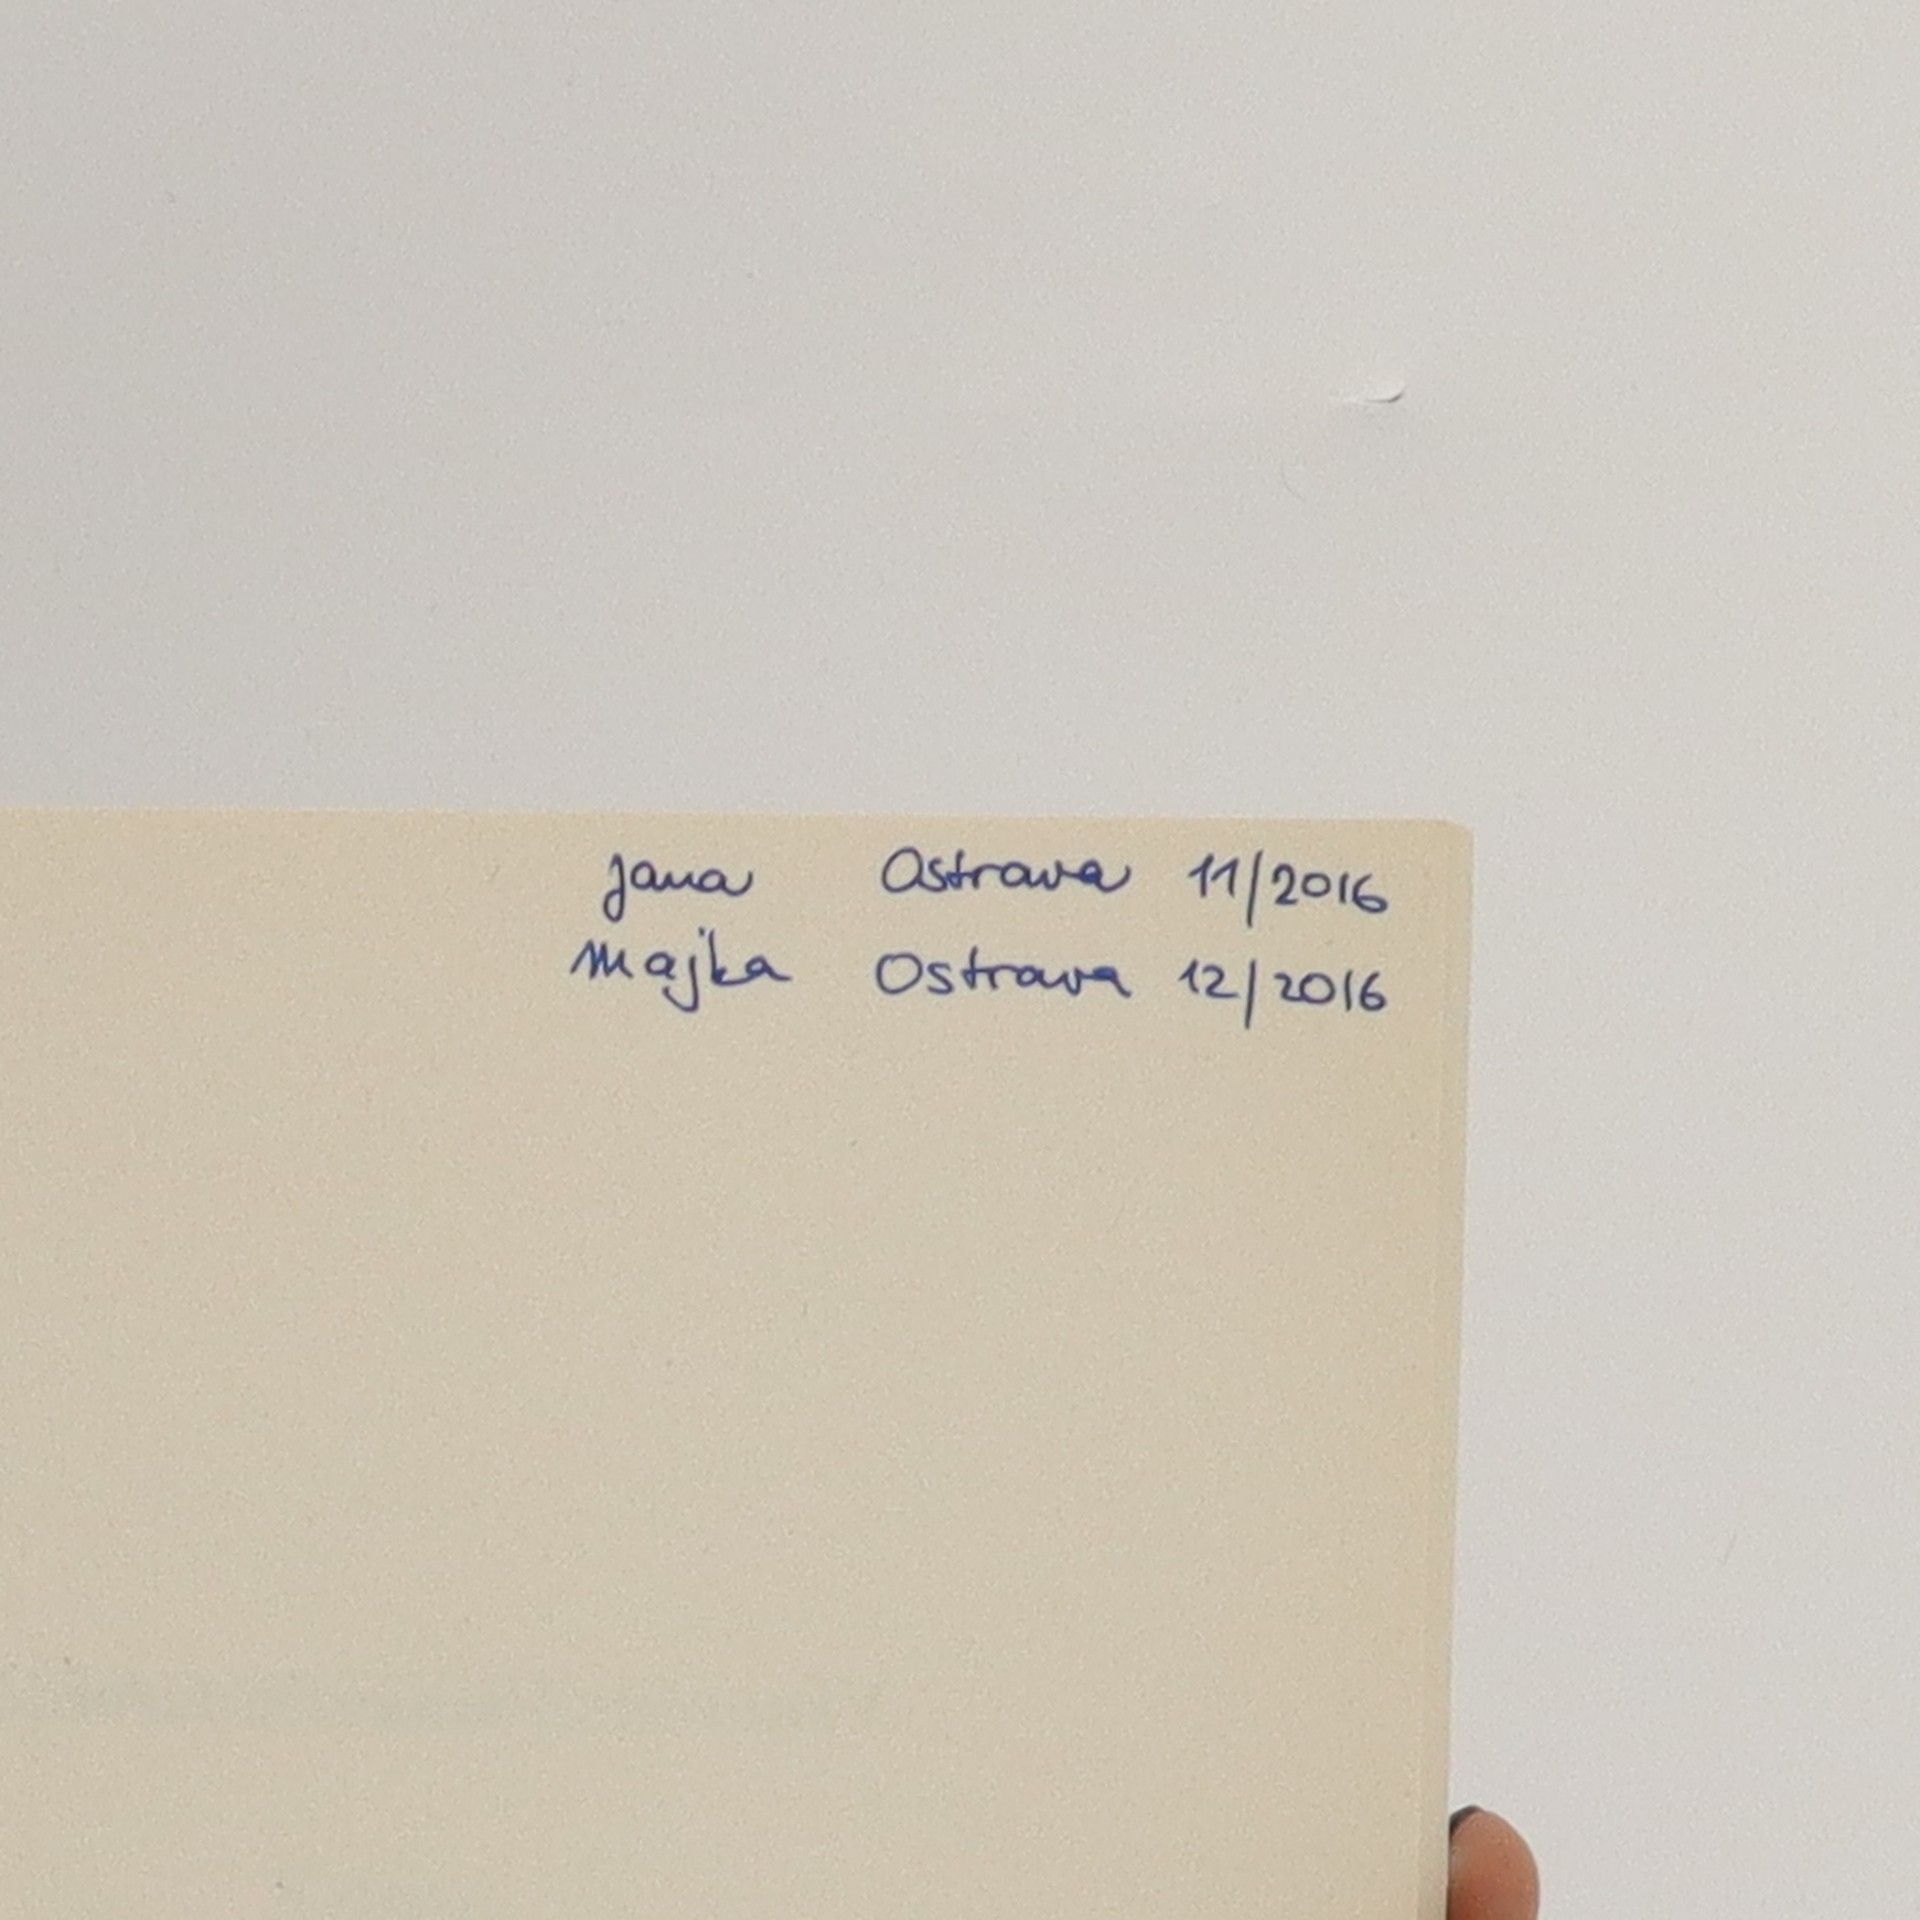 Jana Ostrava 11/2016
Majka Ostrava 12/2016